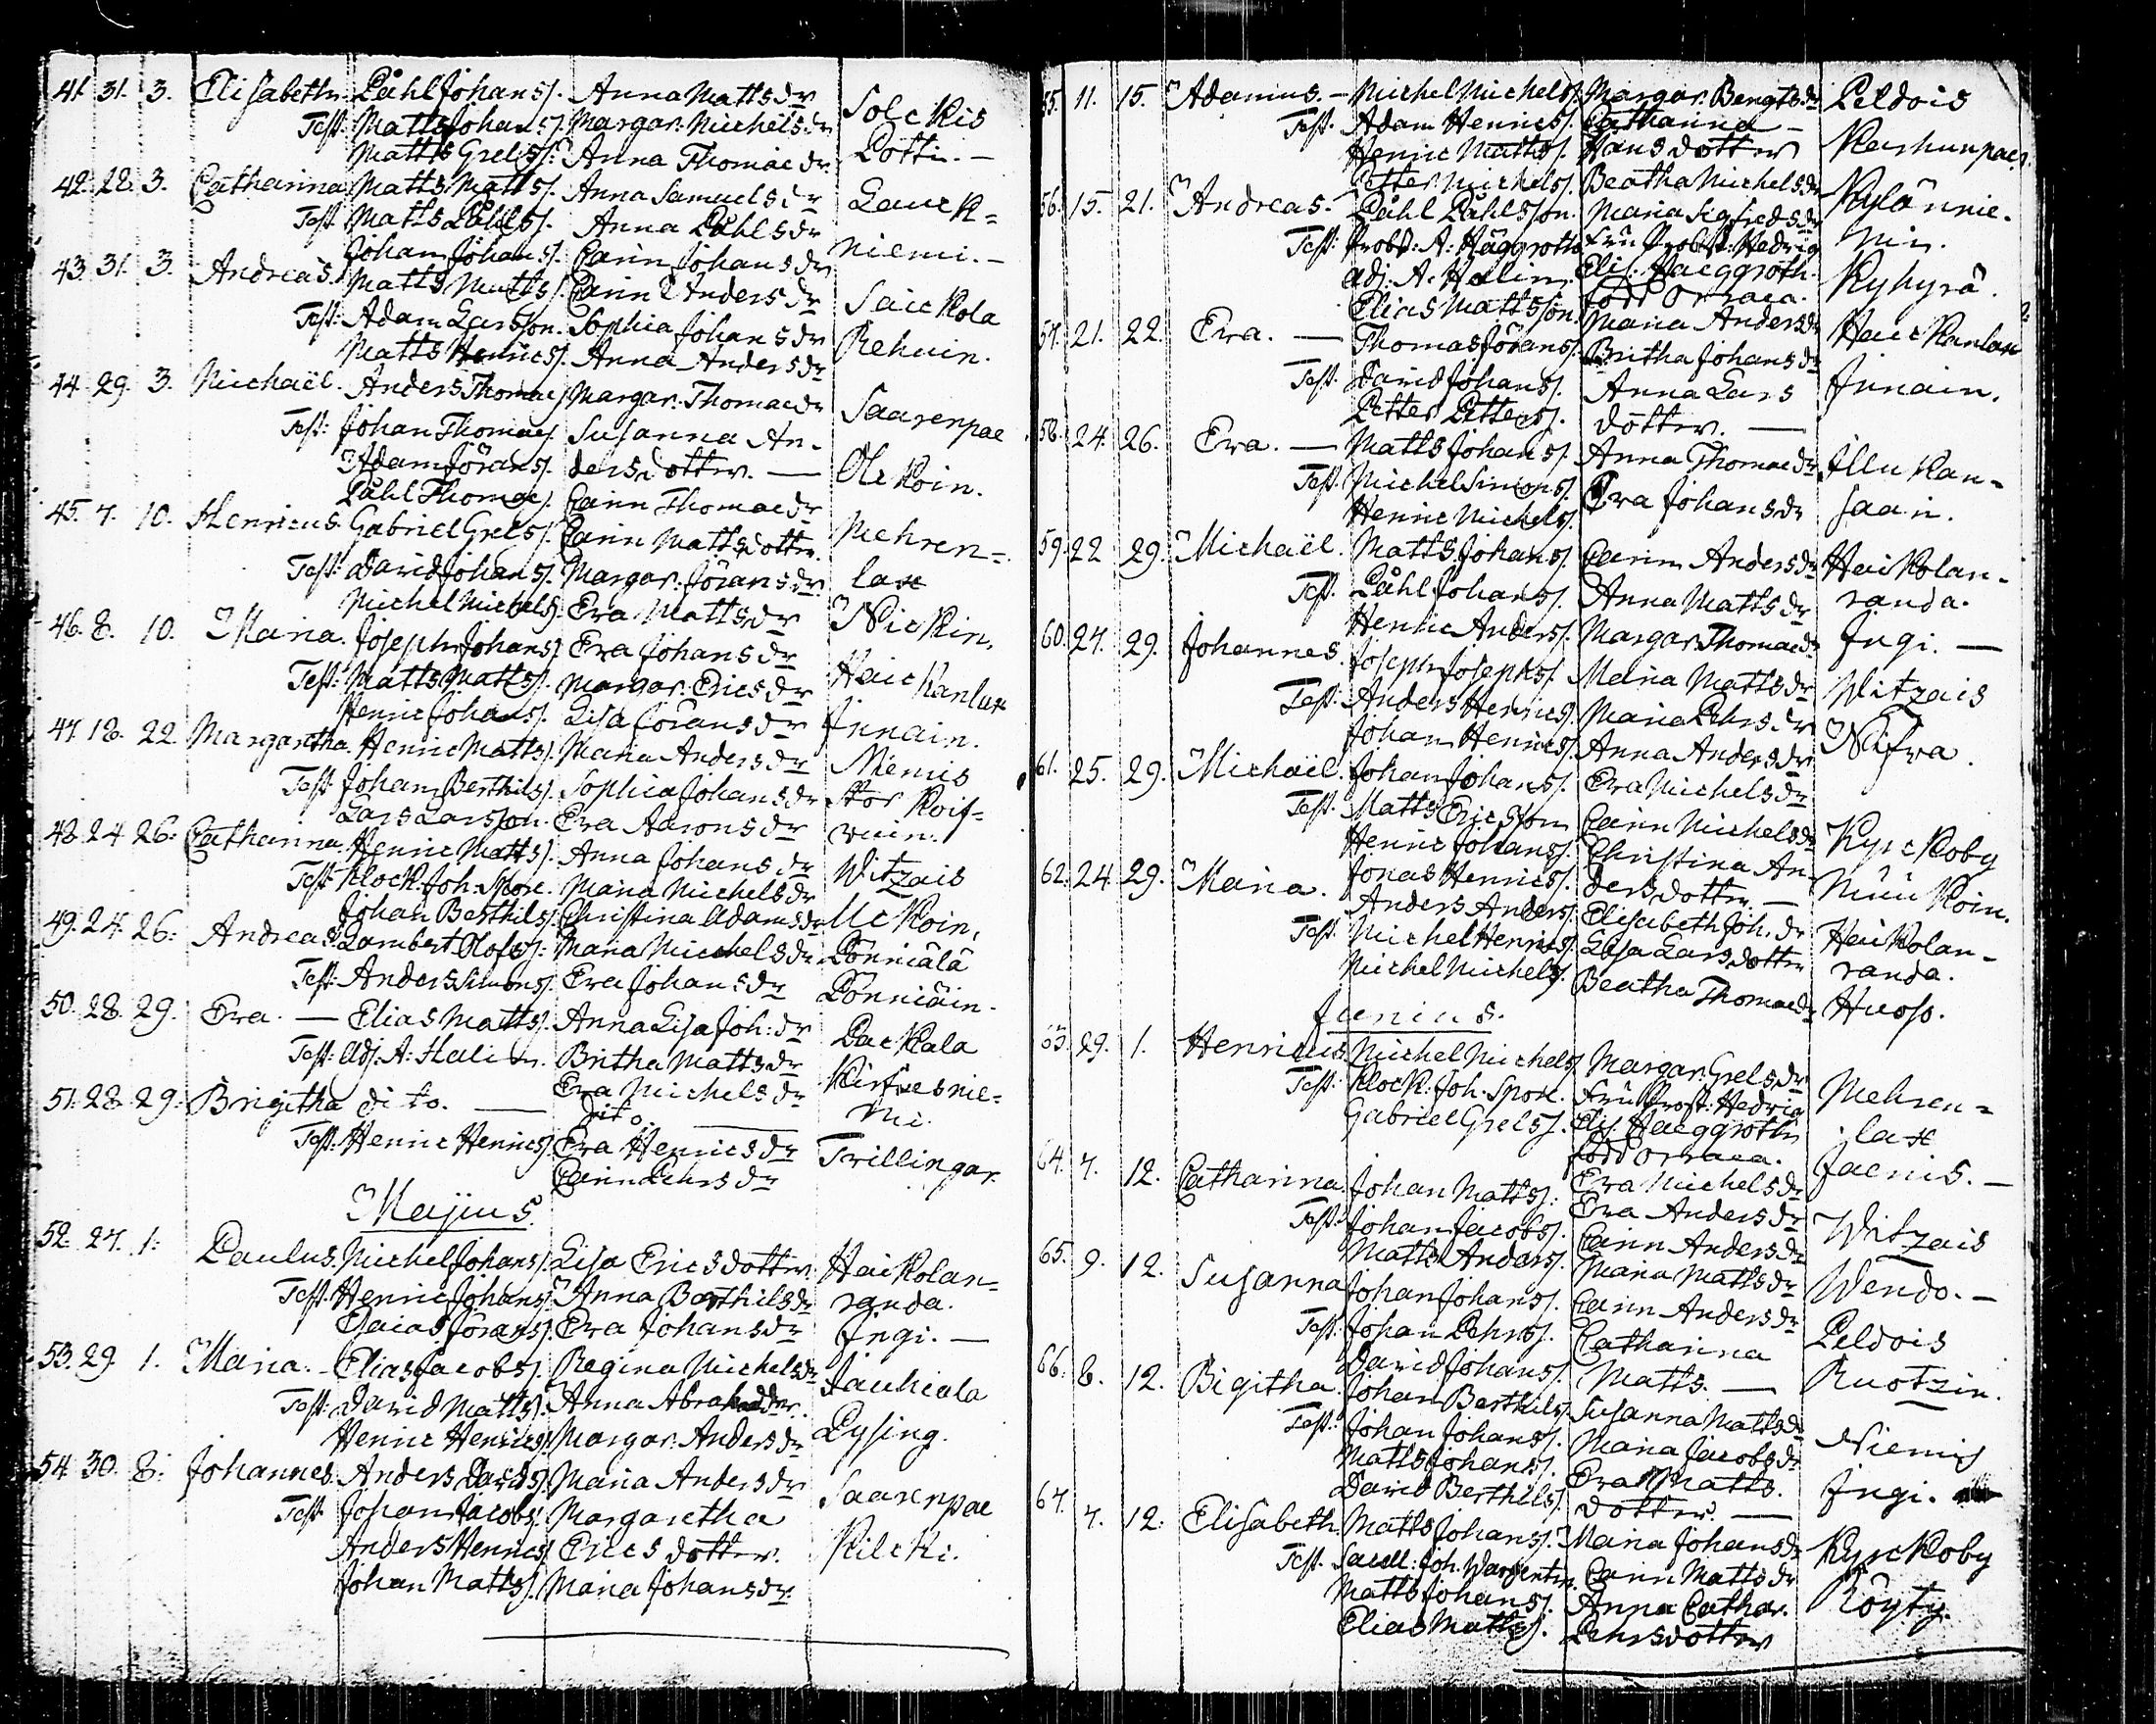 41. 31. 3. Elisabeth. Påhl Johanss. Anna Mattsdr Solckis
Test: Matts Johanss. Margar: Michelsdr Potti. —
Matts Grelss: Anna Thomaedr
42. 28. 3. Catharina Matts Matts. Anna Samuelsdr Lauck=
Test: Matts Påhlss. Anna Påhlsdr niemi. —
Johan Johanss. Carin Johansdr
43. 31. 3. Andreas. Matts Mattss. Carin Andersdr Saickola
Test: Adam Larsson. Sophia Johansdr Rehuin.
Matts Henricss. Anna Andersdr
44. 29. 3. Michaël. Anders Thomaes. Margar: Thomaedr Saarenpae
Test: Johan Thomaes. Susanna An-
Adam Jöranss. dersdotter. — Olckoin.
Påhl Thomaes. Carin Thomaedr
45. 7. 10. Henricus. Gabriel Grelss. Carin Mattsdotter. Mehren=
Test: David Johanss. Margar. Jöransdr. lax
Michel Michelss. Eva Mattsdr Nickin.
46. 8. 10. Maria. Joseph Johanss. Eva Johansdr
Test: Matts Mattss. Margar: Ericsdr Haickanlax
Henric Johanss. Lisa Jöransdr Innain.
47. 18. 22. Margaretha. Henric Mattss. Maria Andersdr Niemis
Test: Johan Berthilss. Sophia Johansdr Stor Koif=
Lars Larsson. Eva Aaronsdr vuin.
48. 24. 26: Catharina. Henric Mattss. Anna Johansdr Witzais
Test: Klock. Joh. Spore. Maria Michelsdr
Johan Berthilss. Christina Adamsdr Ulckoin,
49. 24. 26: Andreas. Lambert Olofss: Maria Michelsdr Pönniälä
Test: Anders Simonss. Eva Johansdr Pönniäin.
50. 28. 29: Eva. — Elias Mattss. Anna Lisa Joh: dr Packala
Test: Adj: A: Halin. Britha Mattsdr Kirfvesnie=
Eva Michelsdr mi.
51. 28. 29: Brigitha dito. — Dito —
Test: Henric Henricss. Eva Henricsdr Trillingar.
Carin Pehrsdr
Majus.
52. 27. 1: Paulus. Michel Johanss. Lisa Ericsdotter. Haikolan=
Test: Henric Johanss. Anna Berthilsdr randa.
Esaias Jöranss. Eva Johansdr Ingi. —
53. 29. 1. Maria. — Elias Jacobss. Regina Michelsdr Jauhiala
Test: David Mattss. Anna Abrahadr. Pysing.
Henric Henricss. Margar: Andersdr
54. 30. 8: Johannes. Anders Davidss. Maria Andersdr Saarenpae
Test. Johan Jacobss. Margaretha
Anders Henricss. Ericsdotter. Kilcki.
Johan Mattss. Maria Johansdr.
55. 11. 15. Adamus. — Michel Michelss. Margar: Bengtsdr Peldois
Test. Adam Henricss. Catharina —
Henric Mattss. Hansdotter Karhunpaes.
Petter Michelss. Beatha Michelsdr
56. 15. 21. Andreas. Påhl Påhlsson. Maria Sigfredsdr Kylännie.
Test: Probst: A: Häggroth. Fru Probst: Hedvig min.
Adj: A. Halin. Elis: Haeggroth. Kyhyrä.
Elias Mattsson. född Orraea.
57. 21. 22. Eva. — Thomas Jöranss. Maria Andersdr Haickanlax
Test. David Johanss. Britha Johansdr
Petter Petterss. Anna Lars Innain.
dotter. —
58. 24. 26. Eva. — Matts Johanss. Anna Thomaedr Illuckan=
Test. Michel Simonss. Eva Johansdr saari.
Henric Michelss.
59. 22 29. Michaël. Matts Johanss. Carin Andersdr Haikolan-
Test. Påhl Johanss. Anna Mattsdr randa.
Henric Anderss. Margar. Thomaedr Ingi. —
60. 27. 29. Johannes. Joseph Josephss. Maria Mattsdr Witzais
Test: Anders Henricss. Maria Pehrsdr
Johan Henricss. Anna Andersdr Nifva.
61. 25. 29. Michaël. Johan Johanss. Eva Michelsdr
Test. Matts Ericsson Carin Michelsdr Kyrckoby
Henric Johanss. Christina An-
Jonas Henricss. dersdotter. — Muuckoin.
62. 24 29. Maria. Anders Anderss. Elisabeth Joh. dr Haikolan-
Test. Michel Henricss. Lisa Larsdotter randa.
Michel Michelss. Beatha Thomaedr Huoso.
Junius.
63. 29. 1. Henricus. Michel Michelss. Margar. Grelsdr Mehren=
Test: Klock: Joh. Spore. Fru Prost: Hedvig lax
Gabriel Grelss. Elis. Haeggroth
född Orraea. Jaenis. —
64. 7. 12. Catharina. Johan Mattss: Eva Michelsdr
Test: Johan Jacobss. Eva Andersdr Witzais
Matts Anderss. Carin Andersdr
65. 9. 12. Susanna Johan Johanss. Maria Mattsdr Wendo. —
Test: Johan Pehrss. Carin Andersdr
David Johanss. Catharina Peldois
Matts. — Ruotzin.
66. 8. 12. Bigitha. Johan Berthilss. Susanna Mattsdr
Test: Johan Johanss. Maria Jacobsdr Niemis
Matts Johanss. Eva Matts.
David Berthilss. dotter. — Ingi.
67. 7. 12: Elisabeth. Matts Johanss. Maria Johansdr Kyrckoby
Test. Sacell: Joh. Wargentin. Carin Mattsdr
Matts Johanss. Anna Cathar. Röyty.
Elias Mattss. Pehrsdotter